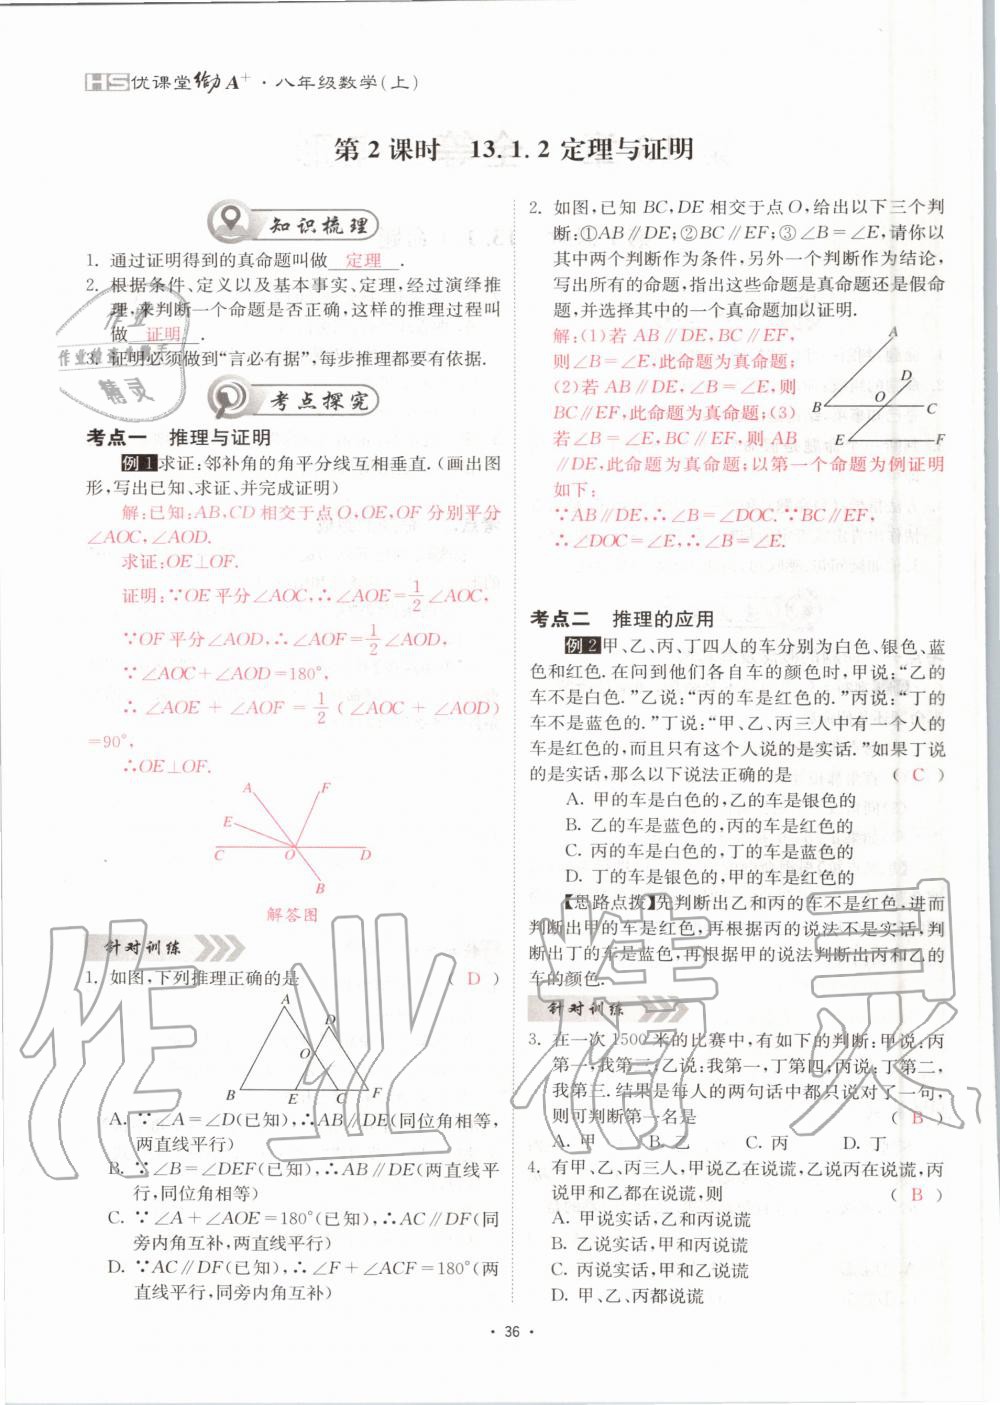 HS优课堂给力A⁺·八年级数学(上)
第2课时 13.1.2定理与证明
知识梳理
1. 通过证明得到的真命题叫做 定理 .
2. 根据条件、定义以及基本事实、定理,经过演绎推
理,来判断一个命题是否正确,这样的推理过程叫
做 证明 .
3. 证明必须做到“言必有据”,每步推理都要有依据.
考点探究
考点一 推理与证明
例1 求证:邻补角的角平分线互相垂直.(画出图
形,写出已知、求证、并完成证明)
解:已知:AB,CD相交于点O,OE,OF分别平分
∠AOC,∠AOD.
求证:OE⊥OF.
证明:∵OE平分∠AOC,∴∠AOE=1/2∠AOC,
∵OF平分∠AOD,∴∠AOF=1/2∠AOD,
∵∠AOC+∠AOD=180°,
∴∠AOE+∠AOF=1/2(∠AOC+∠AOD)
=90°,
∴OE⊥OF.
A F
E
C O D
B
解答图
针对训练
1. 如图,下列推理正确的是 ( D )
A
D
O
B E C F
A. ∵∠A=∠D(已知),∴AB∥DE(同位角相等,
两直线平行)
B. ∵∠B=∠DEF(已知),∴AB∥DE(两直线平
行,同位角相等)
C. ∵∠A+∠AOE=180°(已知),∴AC∥DF(同
旁内角互补,两直线平行)
D. ∵AC∥DF(已知),∴∠F+∠ACF=180°(两
直线平行,同旁内角互补)
2. 如图,已知BC,DE相交于点O,给出以下三个判
断:①AB∥DE;②BC∥EF;③∠B=∠E,请你以
其中两个判断作为条件,另外一个判断作为结论,
写出所有的命题,指出这些命题是真命题还是假命
题,并选择其中的一个真命题加以证明.
解:(1)若AB∥DE,BC∥EF,
则∠B=∠E,此命题为真命题;
(2)若AB∥DE,∠B=∠E,则
BC∥EF,此命题为真命题;(3)
若∠B=∠E,BC∥EF,则AB
∥DE,此命题为真命题;以第一个命题为例证明
如下:
∵AB∥DE,∴∠B=∠DOC.∵BC∥EF,
∴∠DOC=∠E,∴∠B=∠E.
A
D
O
B C
E F
考点二 推理的应用
例2 甲、乙、丙、丁四人的车分别为白色、银色、蓝
色和红色.在问到他们各自车的颜色时,甲说:“乙的
车不是白色.”乙说:“丙的车是红色的.”丙说:“丁的
车不是蓝色的.”丁说:“甲、乙、丙三人中有一个人的
车是红色的,而且只有这个人说的是实话.”如果丁说
的是实话,那么以下说法正确的是 ( C )
A. 甲的车是白色的,乙的车是银色的
B. 乙的车是蓝色的,丙的车是红色的
C. 丙的车是白色的,丁的车是蓝色的
D. 丁的车是银色的,甲的车是红色的
【思路点拨】先判断出乙和丙的车不是红色,进而
判断出甲的车是红色,再根据丙的说法不是实话,判
断出丁的车是蓝色,再根据甲的说法判断出丙和乙的
车的颜色.
针对训练
3. 在一次1500米的比赛中,有如下的判断:甲说:丙
第一,我第三;乙说:我第一,丁第四;丙说:丁第二,
我第三.结果是每人的两句话中都只说对了一句,
则可判断第一名是 ( B )
A. 甲 B. 乙 C. 丙 D. 丁
4. 有甲、乙、丙三人,甲说乙在说谎,乙说丙在说谎,丙
说甲和乙都在说谎,则 ( B )
A. 甲说实话,乙和丙说谎
B. 乙说实话,甲和丙说谎
C. 丙说实话,甲和乙说谎
D. 甲、乙、丙都说谎
· 36 ·
作业精灵